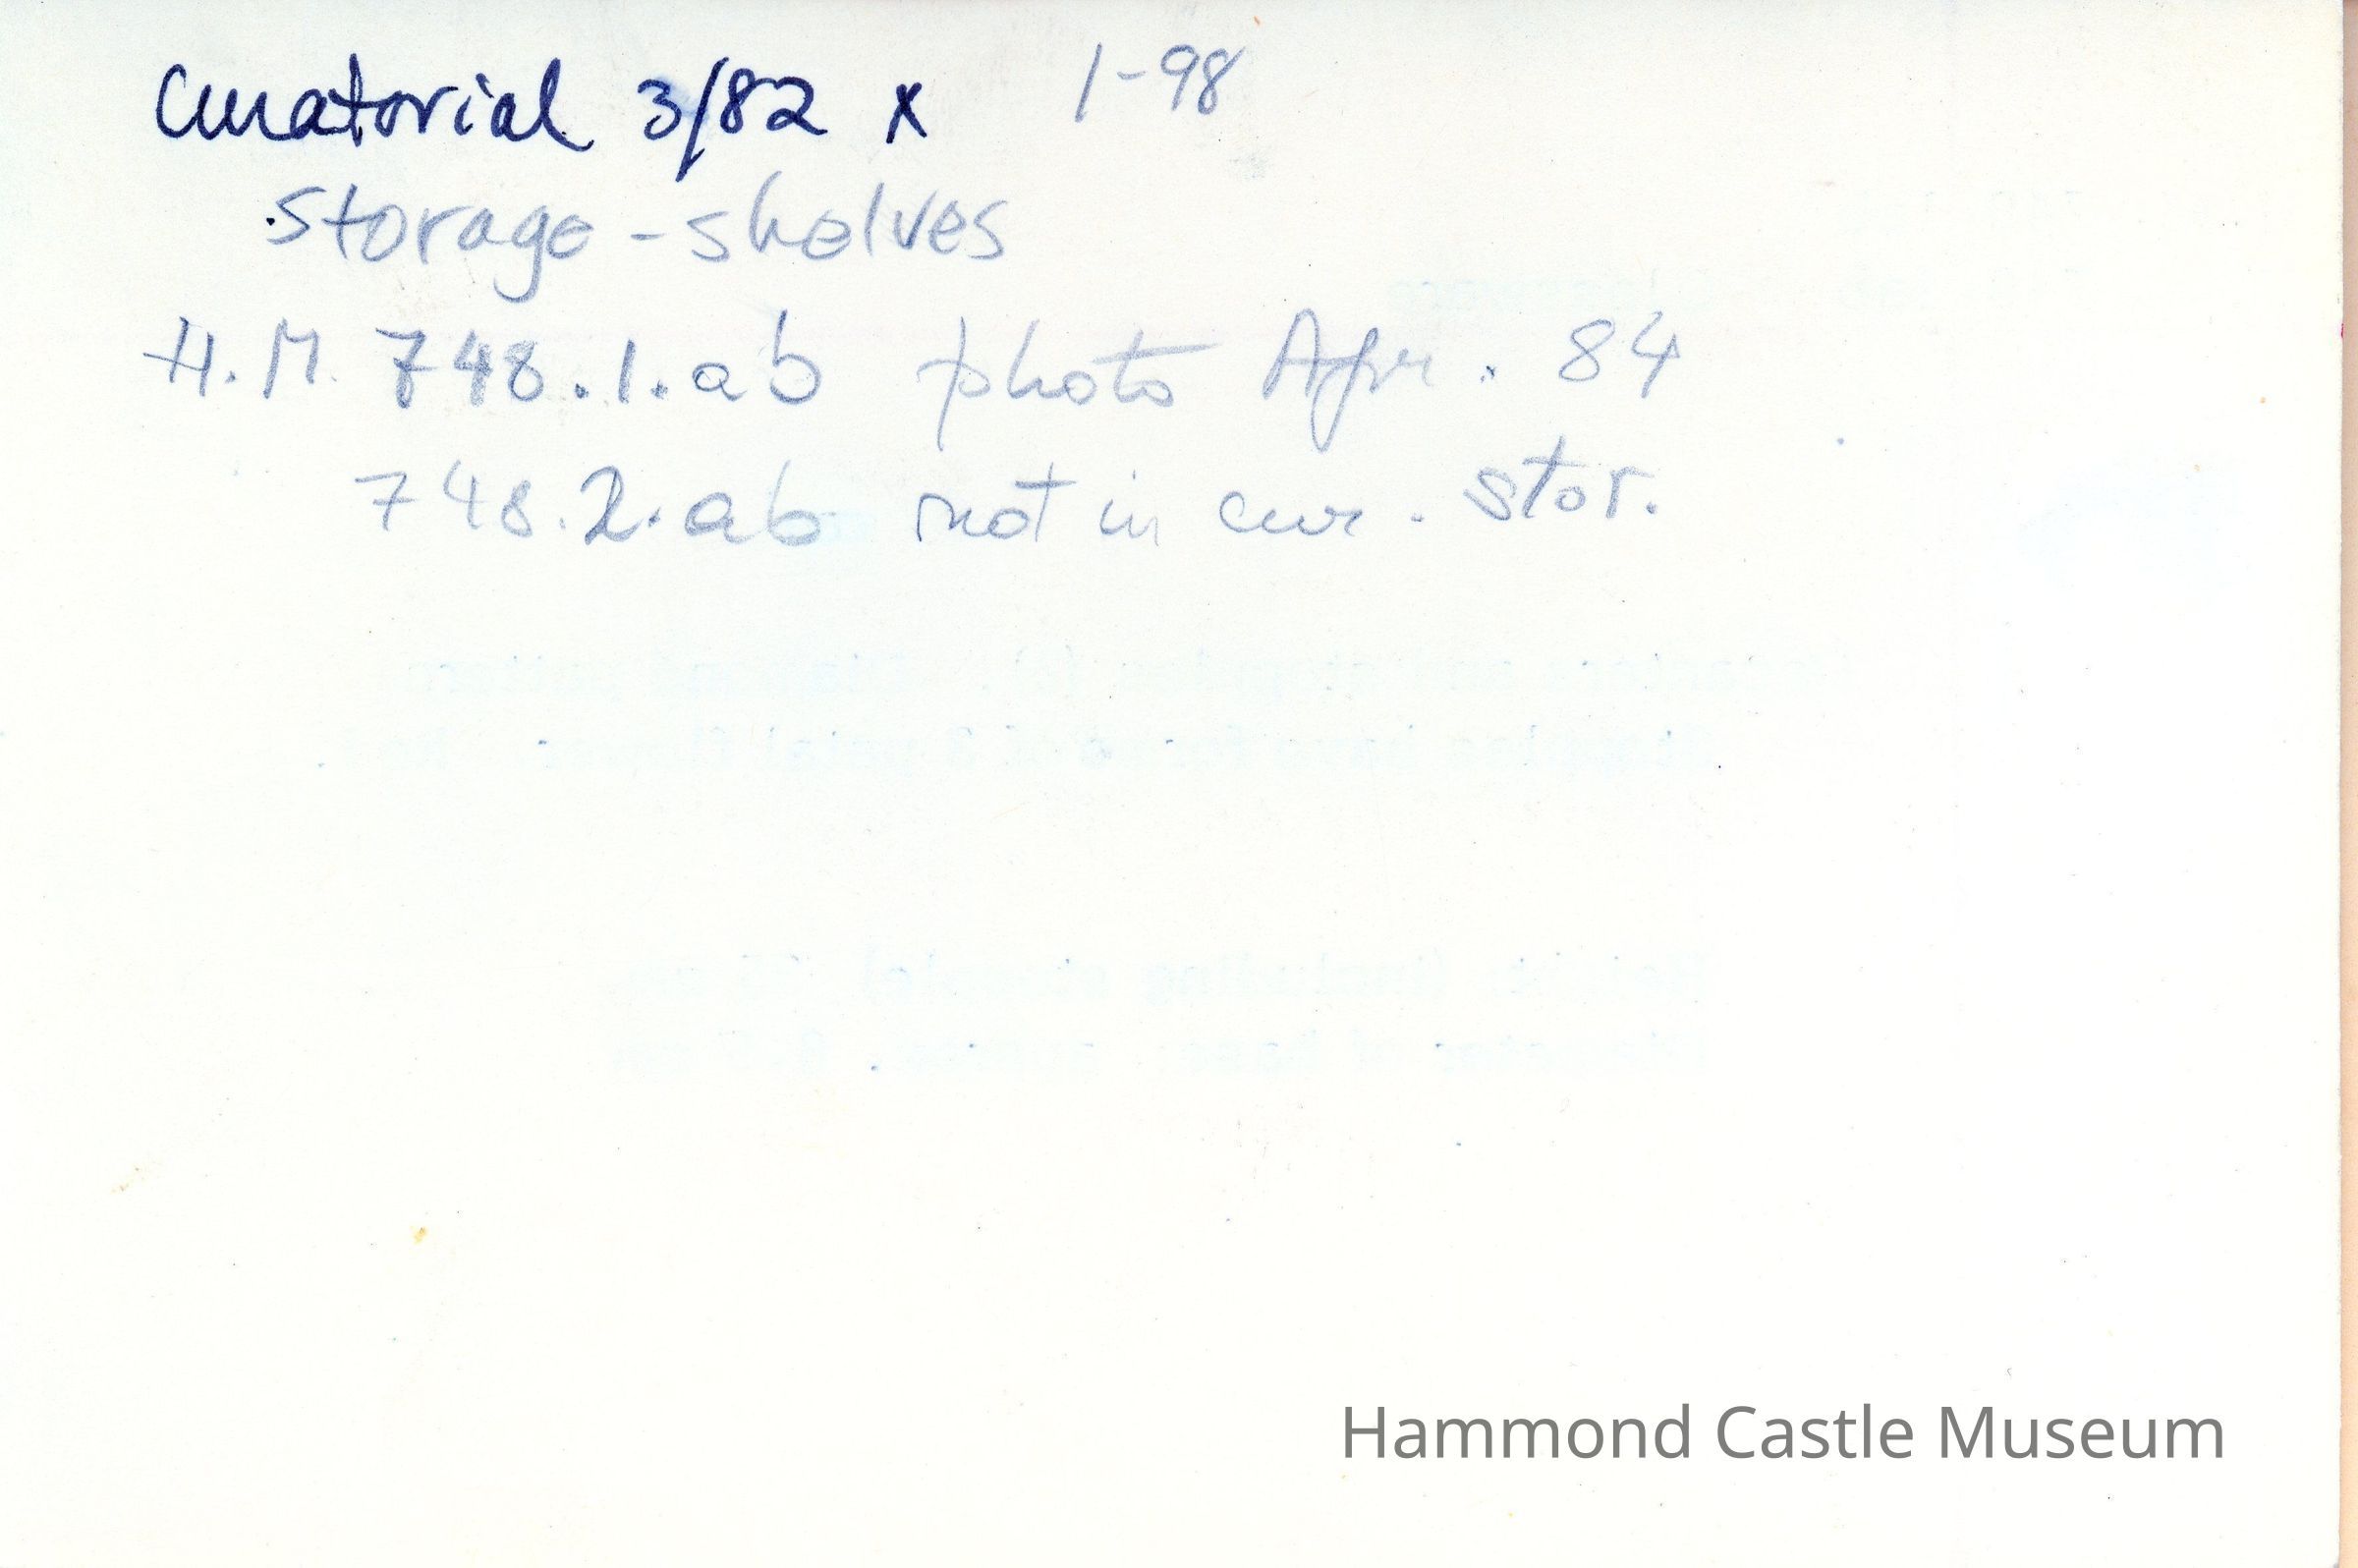 Curatorial 3/82 x 1-98
storage - shelves
H.M. 748.1.ab photo Apr. 84
748.2.ab not in cur. stor.
Hammond Castle Museum